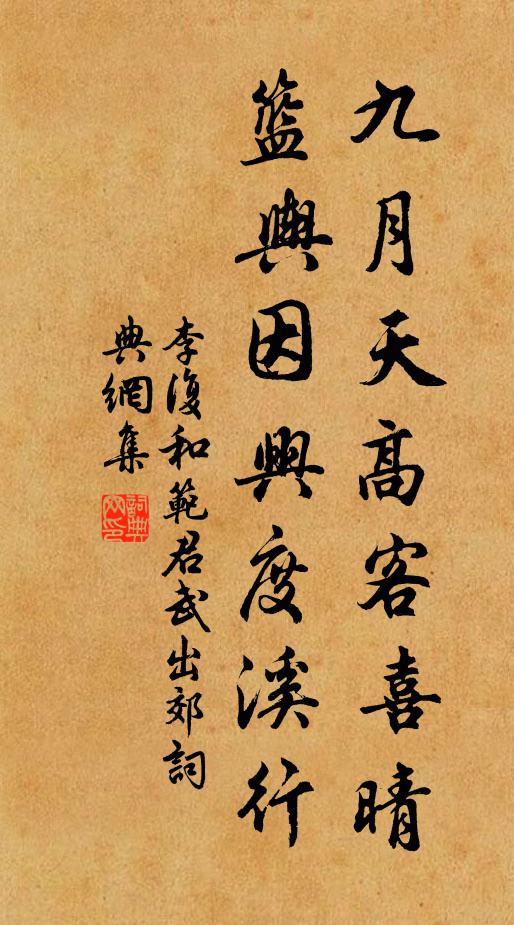 九月天高客喜晴
籃輿因興度溪行
李復和範君武出郊詞
典網集
詞典網印